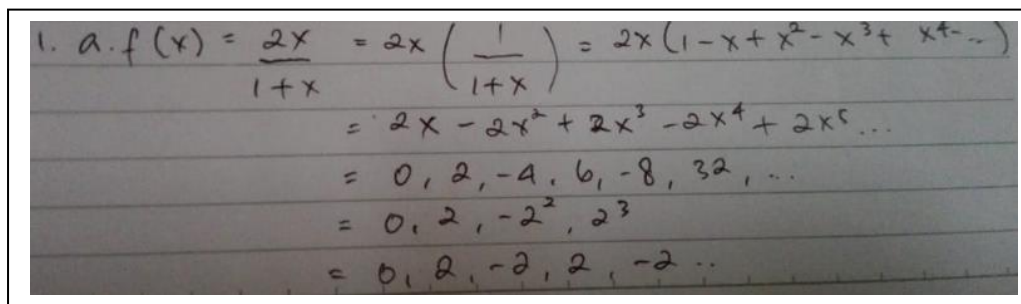 1. a. f(x) = 2x/1+x = 2x (1/1+x) = 2x (1 - x + x² - x³ + x⁴ - ..)
= 2x - 2x² + 2x³ - 2x⁴ + 2x⁵ ...
= 0, 2, -4, 6, -8, 32, ...
= 0, 2, -2², 2³
= 0, 2, -2, 2, -2 ..